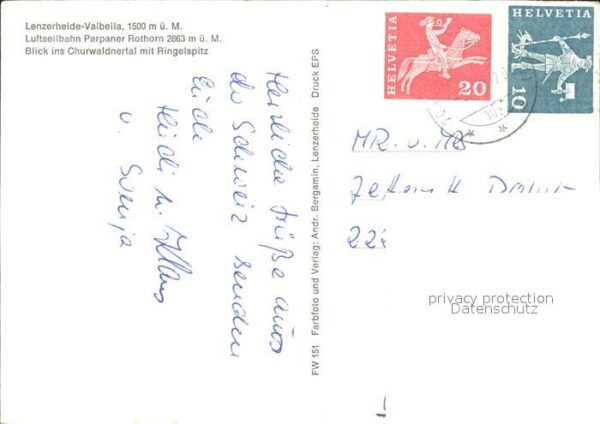 Lenzerheide-Valbella, 1500 m ü. M.
Luftseilbahn Parpaner Rothorn 2863 m ü. M.
Blick ins Churwaldnertal mit Ringelspitz
Herzliche Grüße aus
der Schweiz senden
Euch
Heidi u. Klaus
u. Svenja
FW 151 Farbfoto und Verlag: Andr. Bergamin, Lenzerheide Druck EPS
HELVETIA
20
HELVETIA
10
privacy protection
Datenschutz